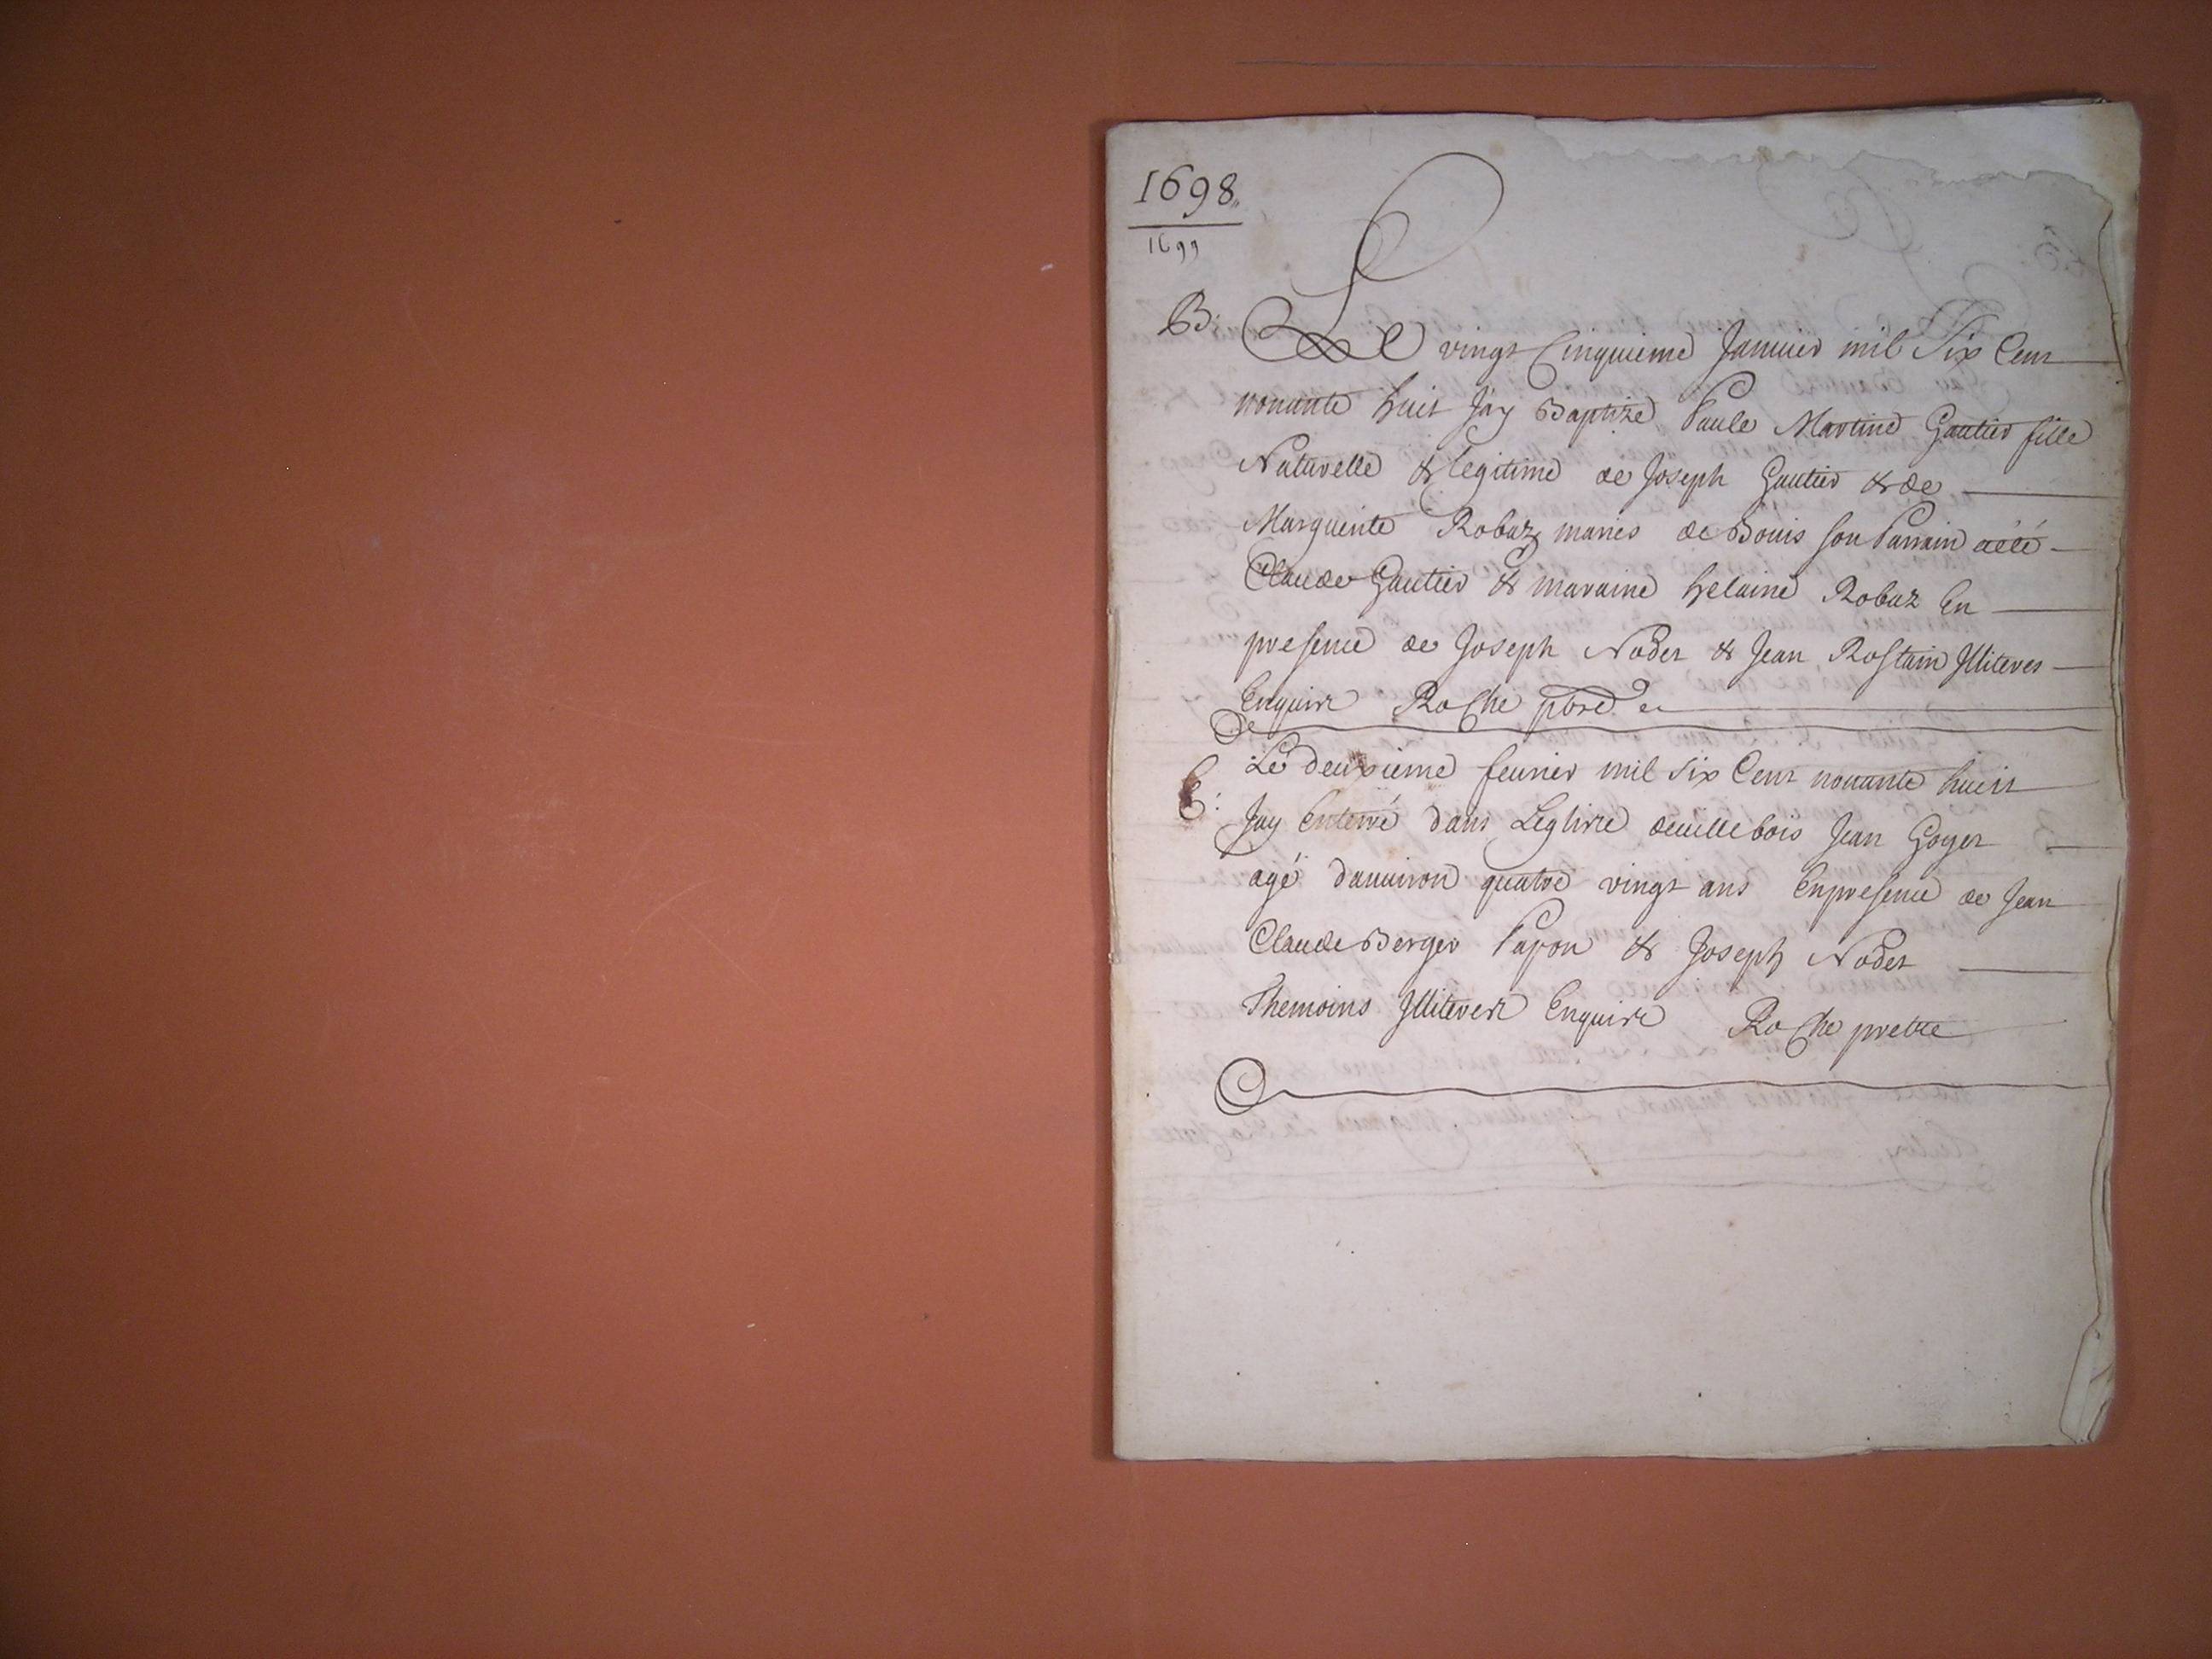 1698
1699
B: Le vingt Cinquieme Januier mil Six Cent
nonante huit Jay Baptizé Paule Martine Gautier fille
Naturelle & legitime de Joseph Gautier & de
Marguerite Robaz maries de Bouis son Parrain aété
Claude Gautier & maraine helaine Robaz En
presence de Joseph Nodet & Jean Rostain Illiteres
Enquire Roche pbre
E: Le deuxieme feurier mil Six Cent nonante huit
Jay Enterré dans Leglise deuillebois Jean Goyet
agé danuiron quatre vingt ans Enpresence de Jean
Claude Berger Papon & Joseph Nodet
Themoins Illiteres Enquire Roche pretre